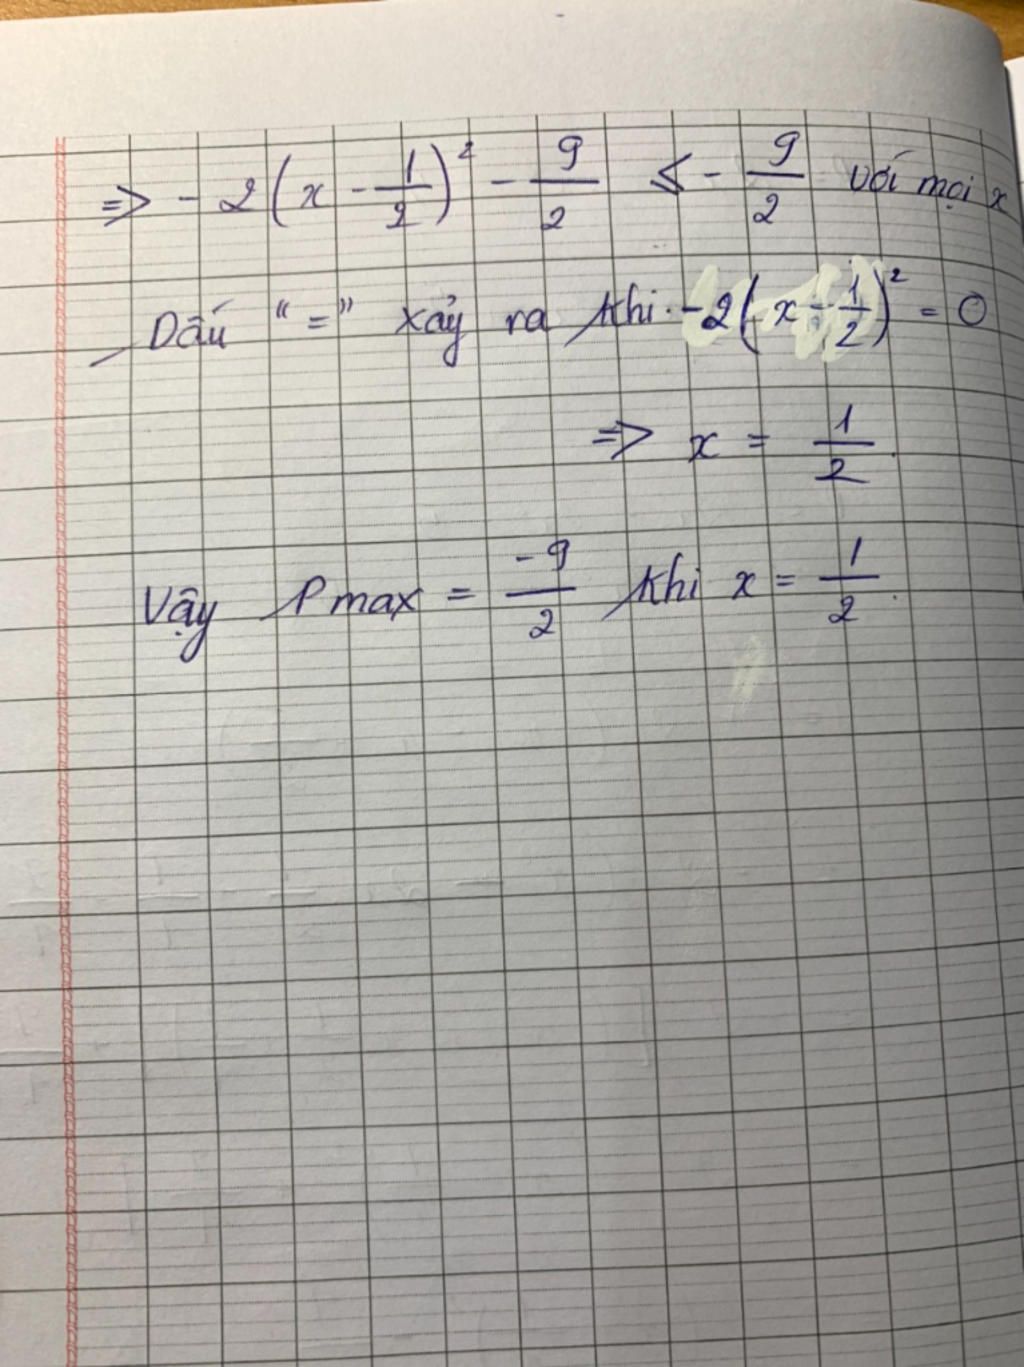 => - 2 (x - 1/2)² - 9/2 ≤ - 9/2 với mọi x
Dấu "=" xảy ra khi -2(x - 1/2)² = 0
=> x = 1/2.
Vậy P max = -9/2 khi x = 1/2.